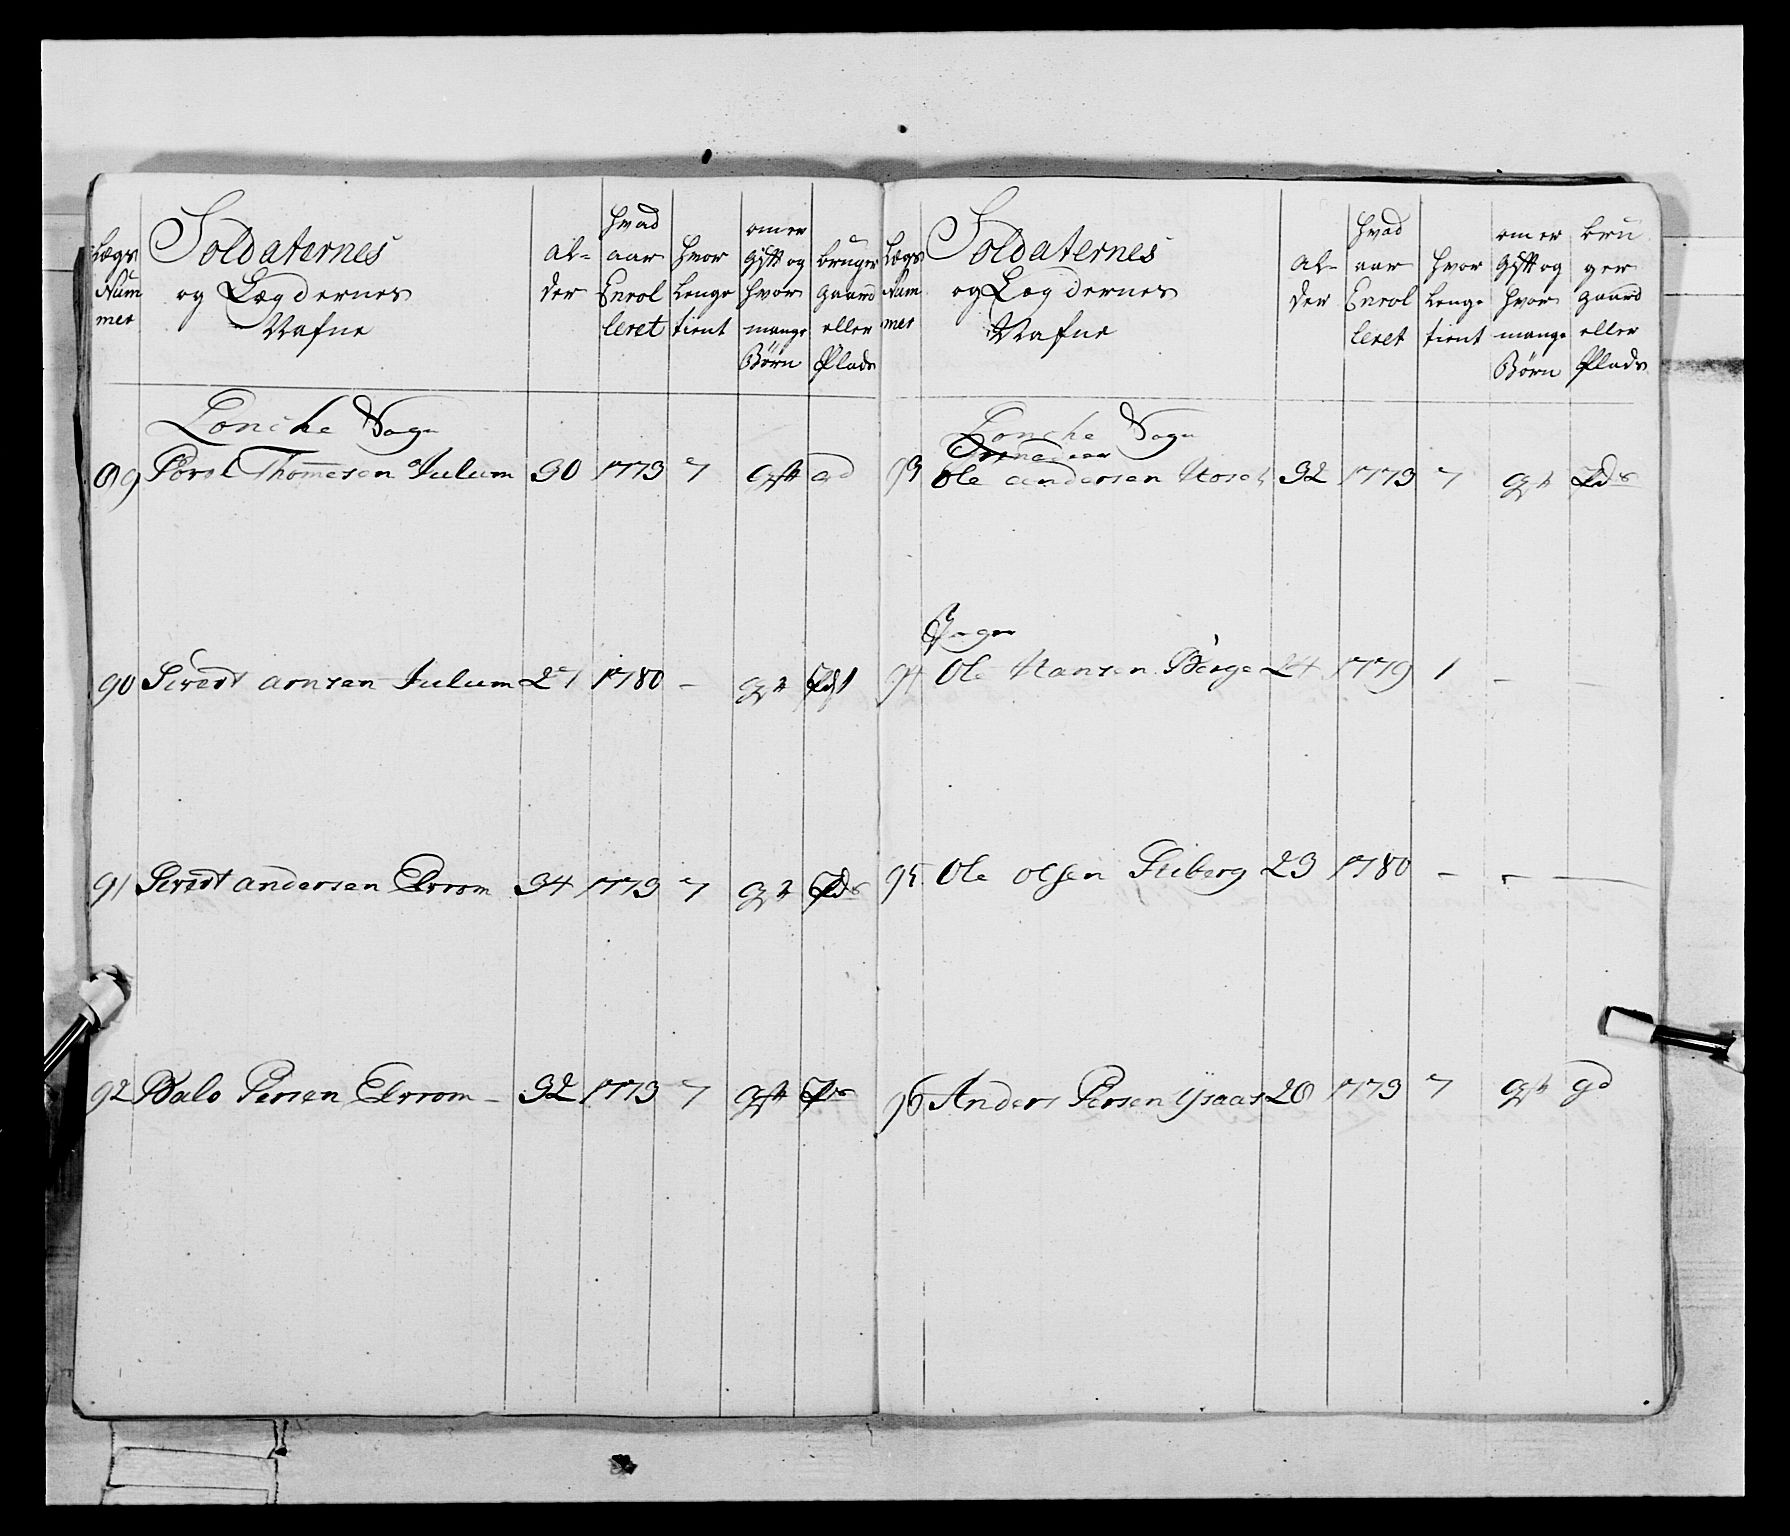 Lægs Nummer
Soldaternes og Lægdernes Nafne
alder
hvad aar Enrolleret
hvor lenge tient
om er gift og hvor mange Børn
bruger gaard eller Plads
Lonche Sogn
89 Thomesen Julum 30 1773 7 gift
90 Sivert arnsen Julum 27 1780 –
91 Sivert andersen Elvrom 34 1773 7
92 Persen Elvrom – 32 1773 7 gift
Lægs Nummer
Soldaternes og Lægdernes Nafne
alder
hvad aar Enrolleret
hvor lenge tient
om er gift og hvor mange Børn
bruger gaard eller Plads
Lonche Sogn
Grenadeer
93 Ole andersen 32 1773 7
Jæger
94 Ole Hansen Berge 24 1779 1 – –
95 Ole olsen Stiberg 23 1780 – – –
96 Anders Persen 28 1773 7 gd